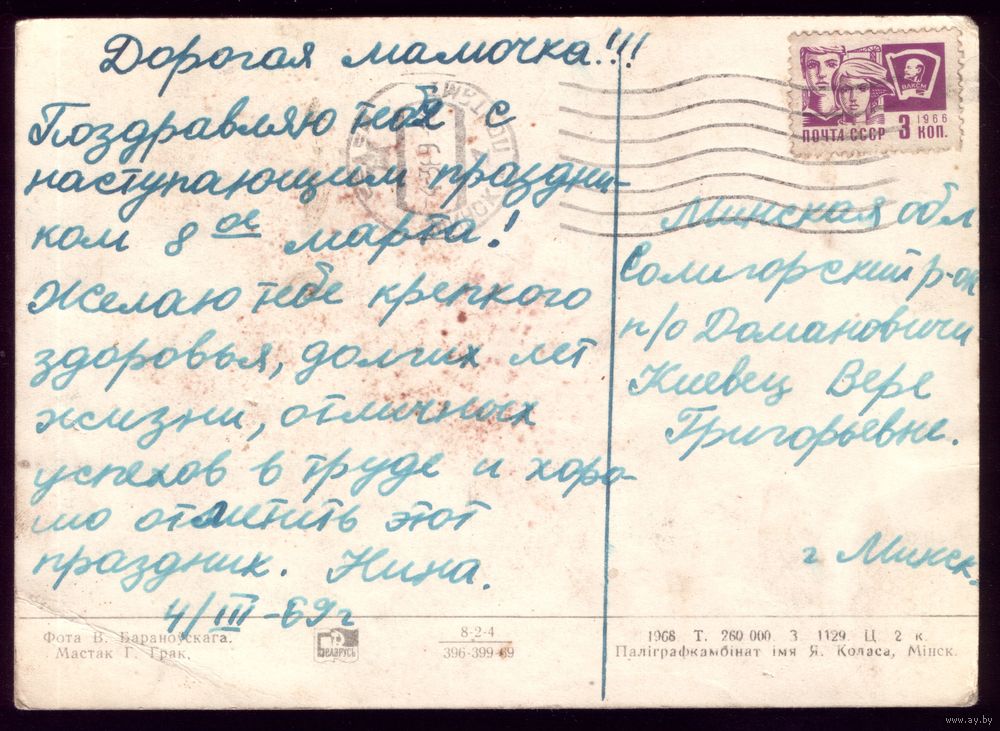 Дорогая мамочка!!!
Поздравляю тебя с
наступающим праздни-
ком 8 ое марта!
Желаю тебе крепкого
здоровья, долгих лет
жизни, отличных
успехов в труде и хоро-
шо отметить этот
праздник. Нина.
4/III-69г
ВЛКСМ
1966
ПОЧТА СССР 3 КОП.
Минская обл
Солигорский р-он
п/о Домановичи
Киевец Вере
Григорьевне.
г Минск.
Фота В. Бараноўскага.
Мастак Г. Грак.
БЕЛАРУСЬ
8-2-4
396-399-69
1968 Т. 260 000 З. 1129. Ц. 2 к.
Паліграфкамбінат імя Я. Коласа, Мінск.
www.ay.by